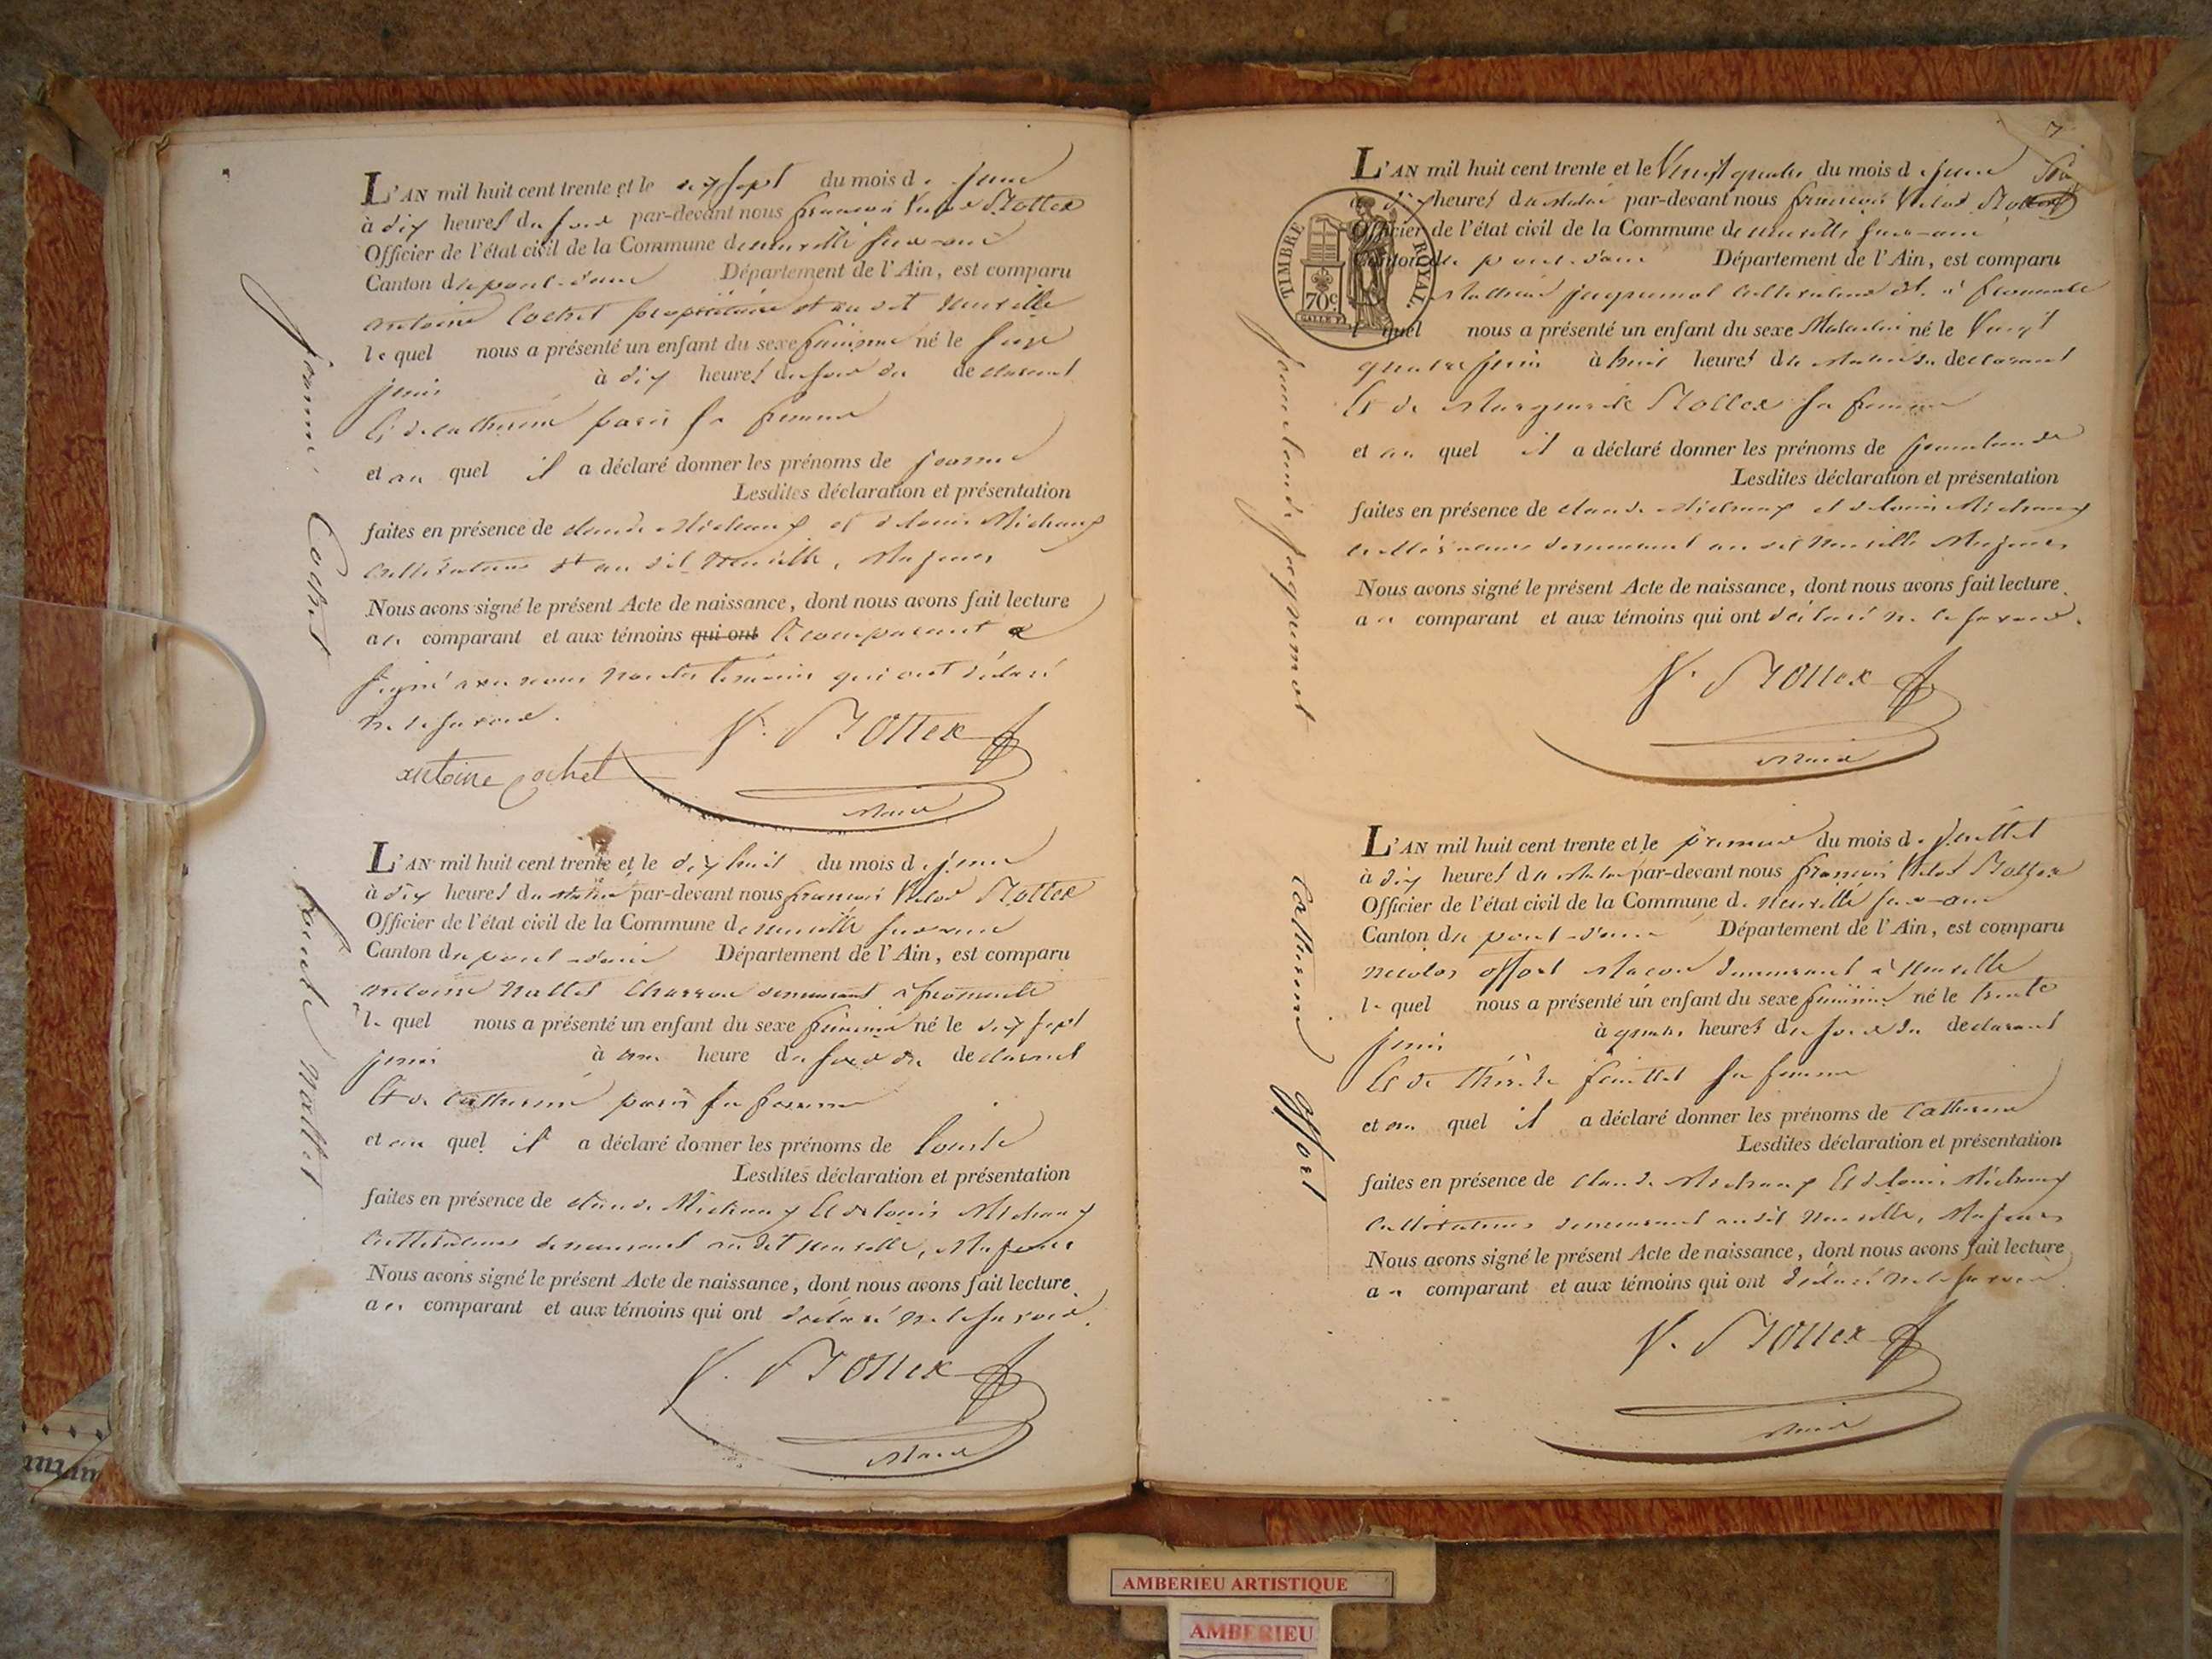 L'AN mil huit cent trente et le dix sept du mois de juin
à dix heures du soir par-devant nous françois Stottex
Officier de l'état civil de la Commune de neuville sur-ain
Canton de pont-d'ain Département de l'Ain, est comparu
antoine Cochet propriétaire dt au dit Neuville
le quel nous a présenté un enfant du sexe féminin né le
juin à dix heures du soir du declarant
Et de catherine paris sa femme
et au quel il a déclaré donner les prénoms de jeanne
Lesdites déclaration et présentation
faites en présence de claude Michaux et de louis Michaux
cultivateurs dt au dit Neuville, Majeurs
Nous avons signé le présent Acte de naissance, dont nous avons fait lecture
au comparant et aux témoins qui ont le comparant a
signé avec nous non les témoins qui ont déclaré
ne le savoir.
V. Stottex
antoine Cochet
Maire
jeanne Cochet
L'AN mil huit cent trente et le dix huit du mois de juin
à dix heures du matin par-devant nous françois Stottex
Officier de l'état civil de la Commune de neuville sur ain
Canton de pont-d'ain Département de l'Ain, est comparu
antoine Nallet Charron demeurant à fromente
le quel nous a présenté un enfant du sexe féminin né le dix sept
juin à une heure du soir du declarant
Et de Catherine paris sa femme
et au quel il a déclaré donner les prénoms de
Lesdites déclaration et présentation
faites en présence de claude Michaux Et de louis Michaux
Cultivateurs demeurant au dit Neuville, Majeurs
Nous avons signé le présent Acte de naissance, dont nous avons fait lecture
au comparant et aux témoins qui ont déclaré ne le savoir.
V. Stottex
Maire
Nallet
7
L'AN mil huit cent trente et le Vingt quatre du mois de juin
à dix heures du matin par-devant nous françois Stottex
Officier de l'état civil de la Commune de neuville sur-ain
Canton de pont-d'ain Département de l'Ain, est comparu
jaquemot Cultivateur dt. à fromente
le quel nous a présenté un enfant du sexe Masculin né le Vingt
quatre juin à huit heures du Matin du declarant
Et de Marguerite Stollex sa femme
et au quel il a déclaré donner les prénoms de jean claude
Lesdites déclaration et présentation
faites en présence de claude Michaux et de louis Michaux
cultivateurs demeurant au dit Neuville Majeurs
Nous avons signé le présent Acte de naissance, dont nous avons fait lecture
au comparant et aux témoins qui ont déclaré ne le savoir.
V. Stottex
Maire
TIMBRE ROYAL.
70c
jean claude jaquemot
L'AN mil huit cent trente et le premier du mois de Juillet
à dix heures du Matin par-devant nous françois Stottex
Officier de l'état civil de la Commune de Neuville sur-ain
Canton de pont-d'ain Département de l'Ain, est comparu
nicolas offort Macon demeurant à Neuville
le quel nous a présenté un enfant du sexe féminin né le trente
juin à quatre heures du soir du declarant
Et de thérèse feuillet sa femme
et au quel il a déclaré donner les prénoms de Catherine
Lesdites déclaration et présentation
faites en présence de Claude Michaux Et de louis Michaux
Cultivateurs demeurant audit Neuville, Majeurs
Nous avons signé le présent Acte de naissance, dont nous avons fait lecture
au comparant et aux témoins qui ont déclaré ne le savoir
V. Stottex
Maire
Catherine offort
AMBERIEU ARTISTIQUE
AMBERIEU